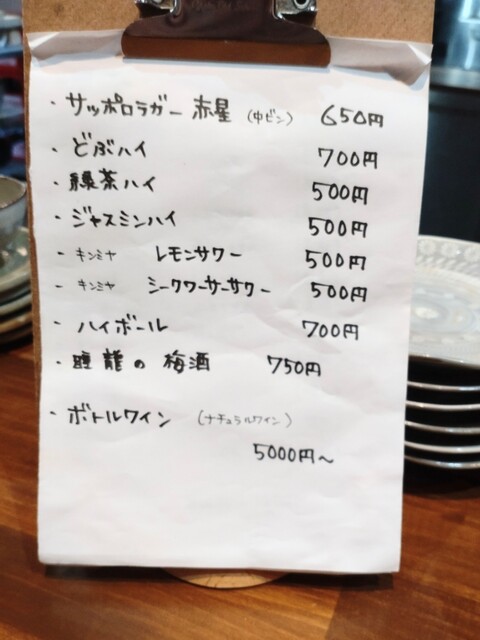 ・サッポロラガー 赤星 (中ビン) 650円
・どぶハイ 700円
・緑茶ハイ 500円
・ジャスミンハイ 500円
・キンミヤ レモンサワー 500円
・キンミヤ シークワーサーサワー 500円
・ハイボール 700円
・睡龍の 梅酒 750円
・ボトルワイン (ナチュラルワイン)
5000円〜